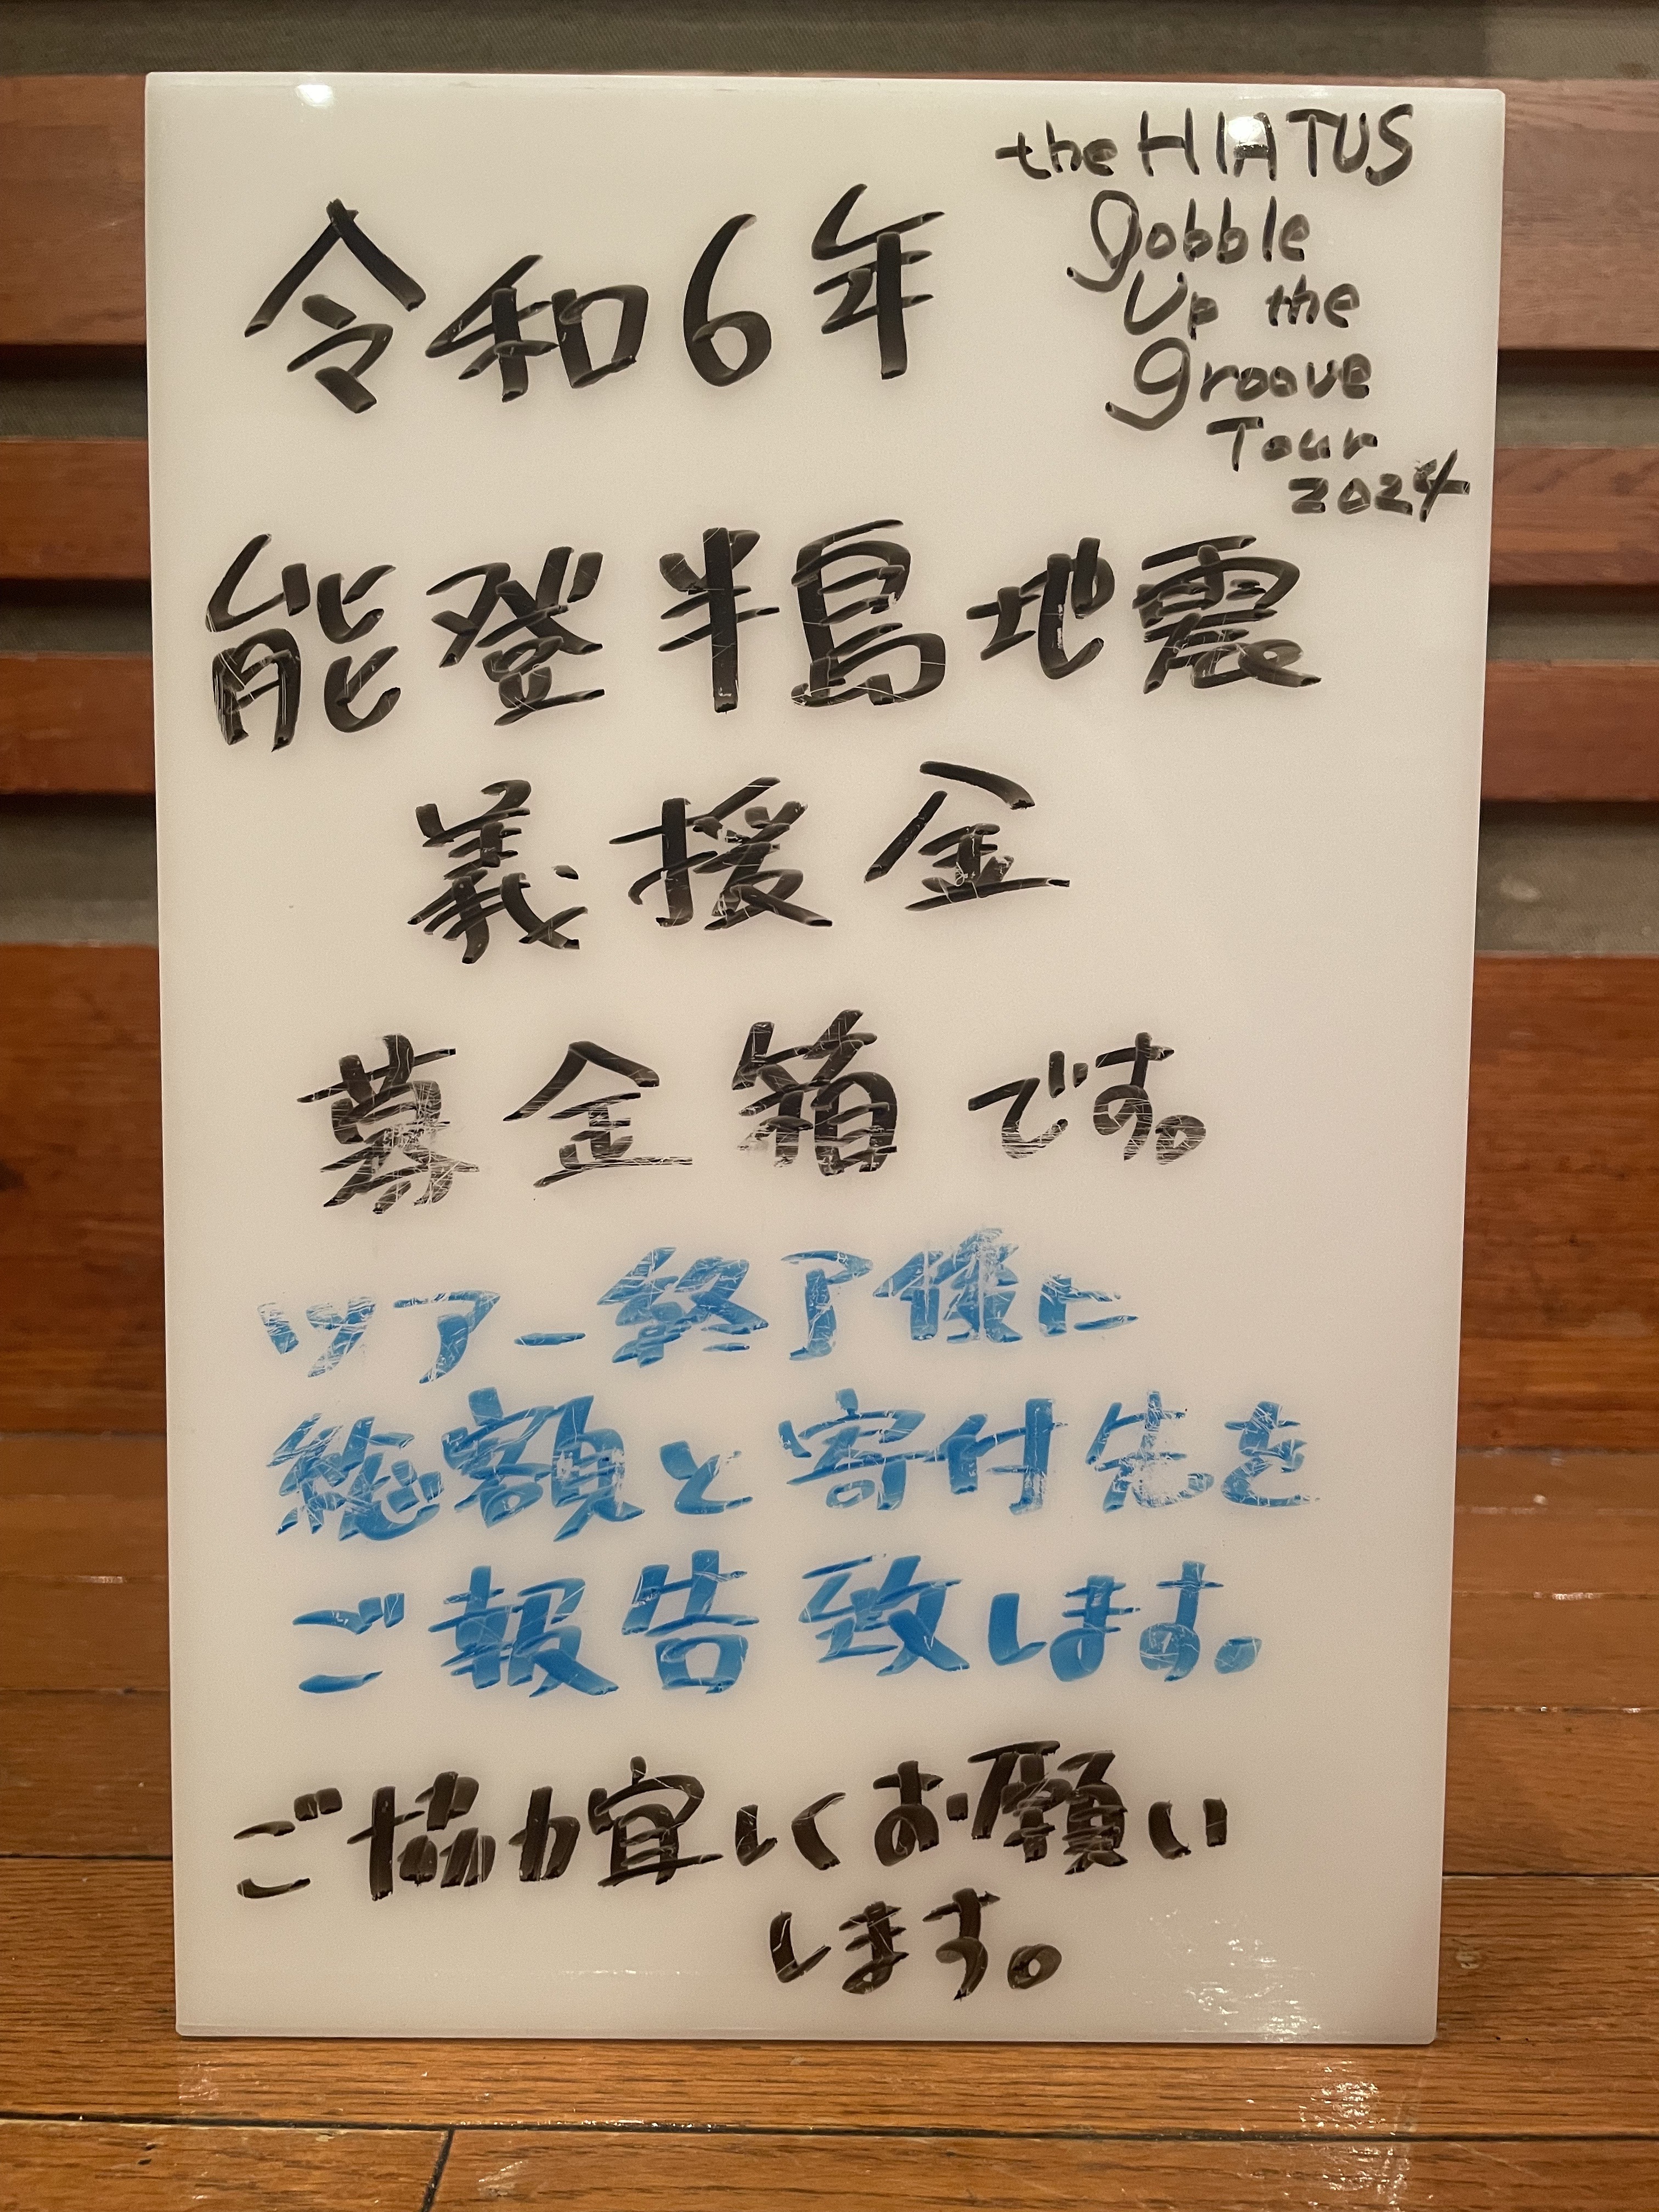 the HIATUS
Gobble
Up the
Groove
Tour
2024
令和6年
能登半島地震
義援金
募金箱です。
ツアー終了後に
総額と寄付先を
ご報告致します。
ご協力宜しくお願い
します。